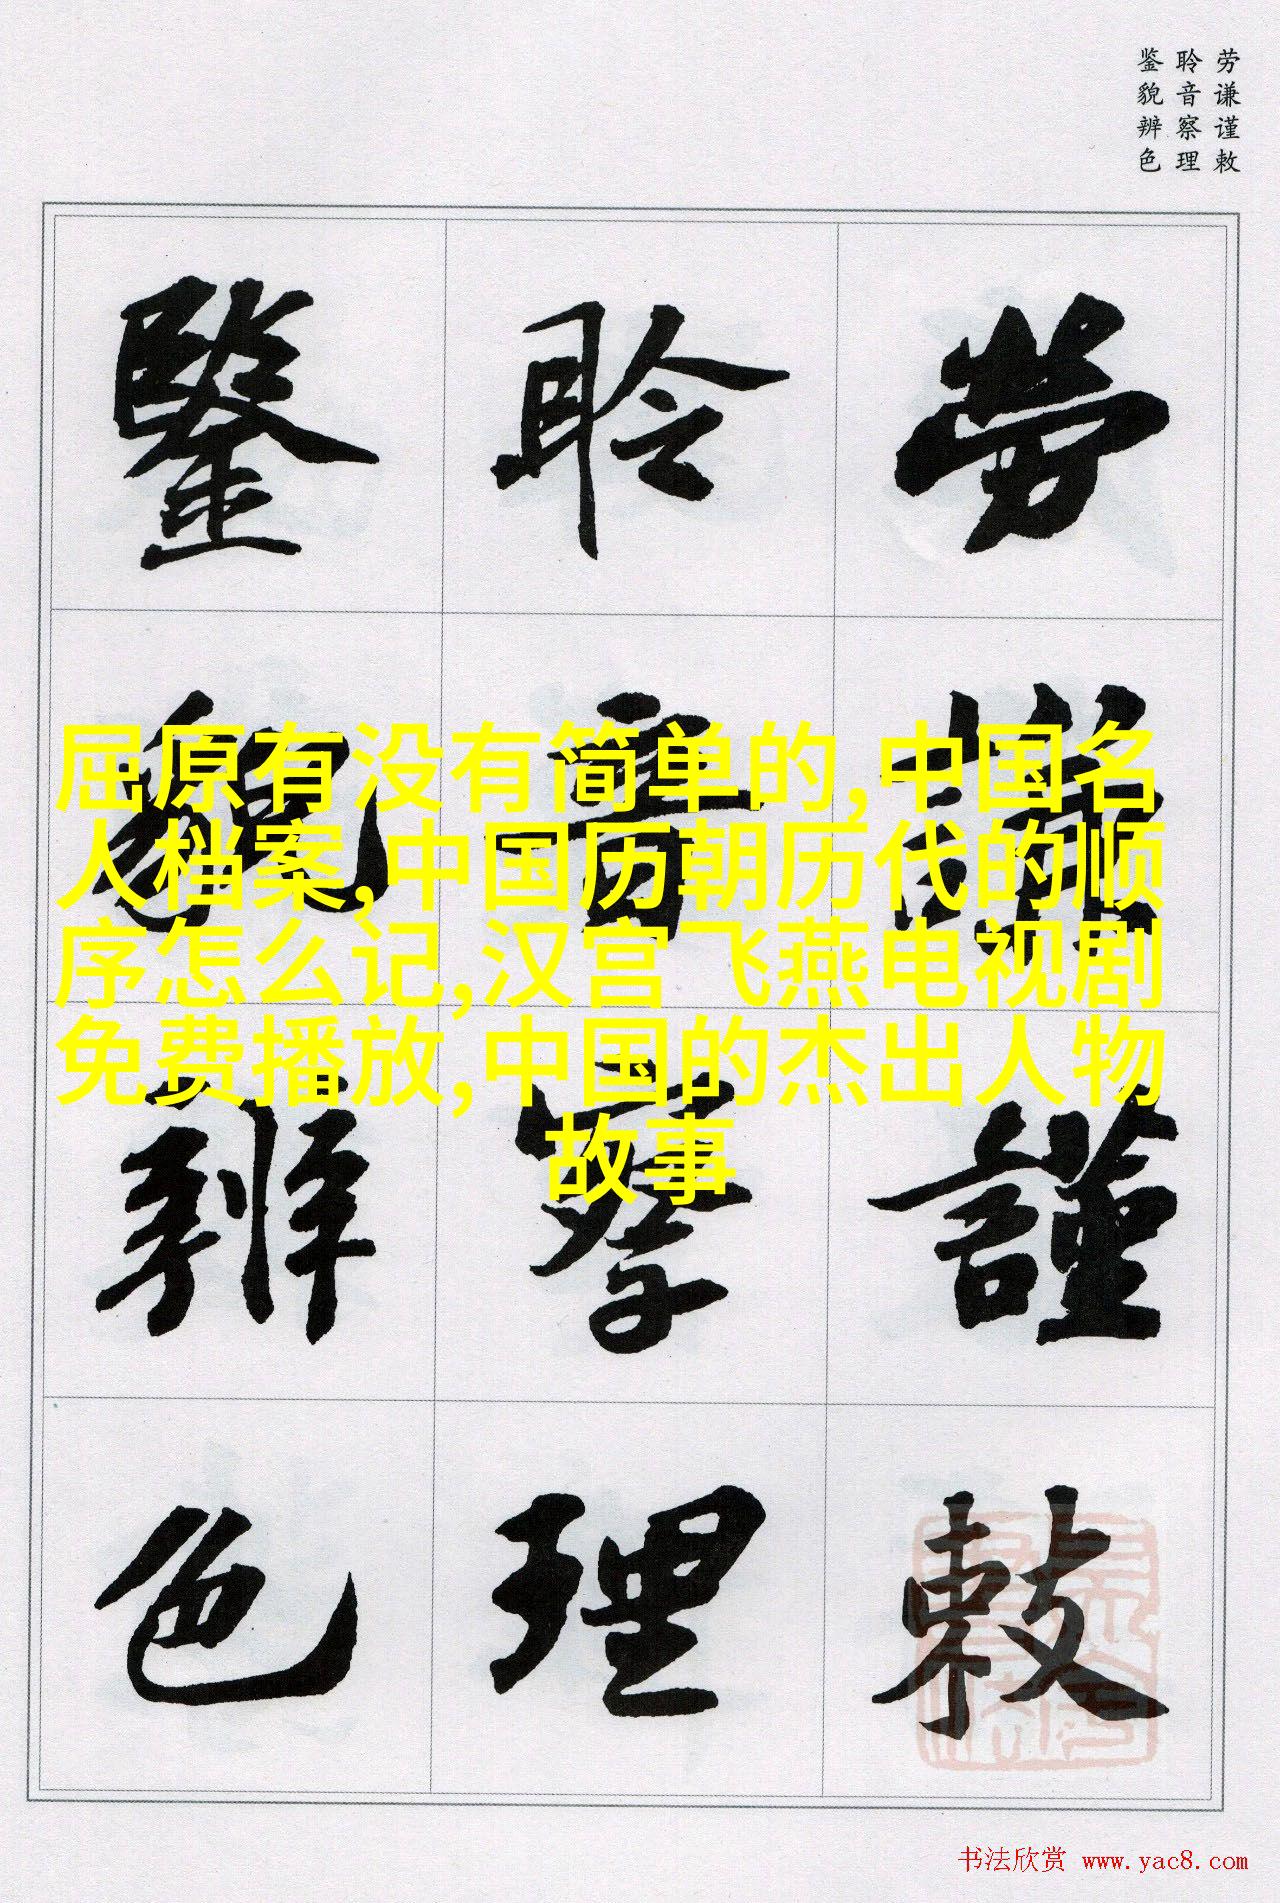 劳谦谨敕
聆音察理
鉴貌辨色
勞謙謹敕
聆音察理
鑒貌辨色
屈原有没有简单的,中国名
人档案,中国历朝历代的顺
序怎么记,汉宫飞燕电视剧
免费播放,中国的杰出人物
故事
书法欣赏 www.yac8.com